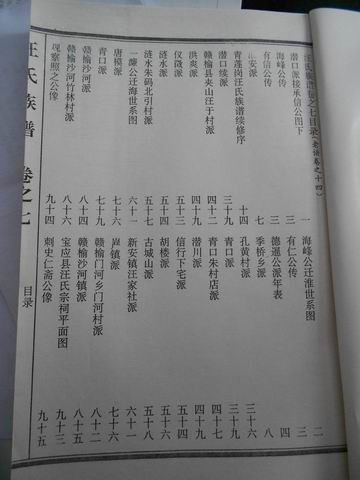 汪氏族谱卷之七目录(老谱卷之十四)
潜口派接承信公图下 一 海峰公迁淮世系图 二
海峰公传 三 有仁公传
有信公传 德暹公派年表
淮安派 七 季桥乡派 八
青莲岗汪氏族谱续修序 十四 孔黄村派 三十六
潜口续派 三十九 青口派 三十九
赣榆县夹山汪于村派 四十二 青口朱村店派
洪爽派 四十九 潜川派 四十九
仪徵派 五十三 信行下宅派 五十四
涟水派 胡楼派
涟水朱码北引村派 五十七 古城山派 五十八
一濂公迁海世系图 六十一 新安镇汪家社派 六十一
唐模派 镇派 七十六
青口派 七十九 赣榆门河乡门河村派 八十一
赣榆沙河派 八十四 赣榆沙河镇派
赣榆沙河竹林村派 宝应县汪氏宗祠平面图 九十三
观察照之公像 九十四 刺史仁斋公像 九十五
汪氏族谱 卷之七 目录